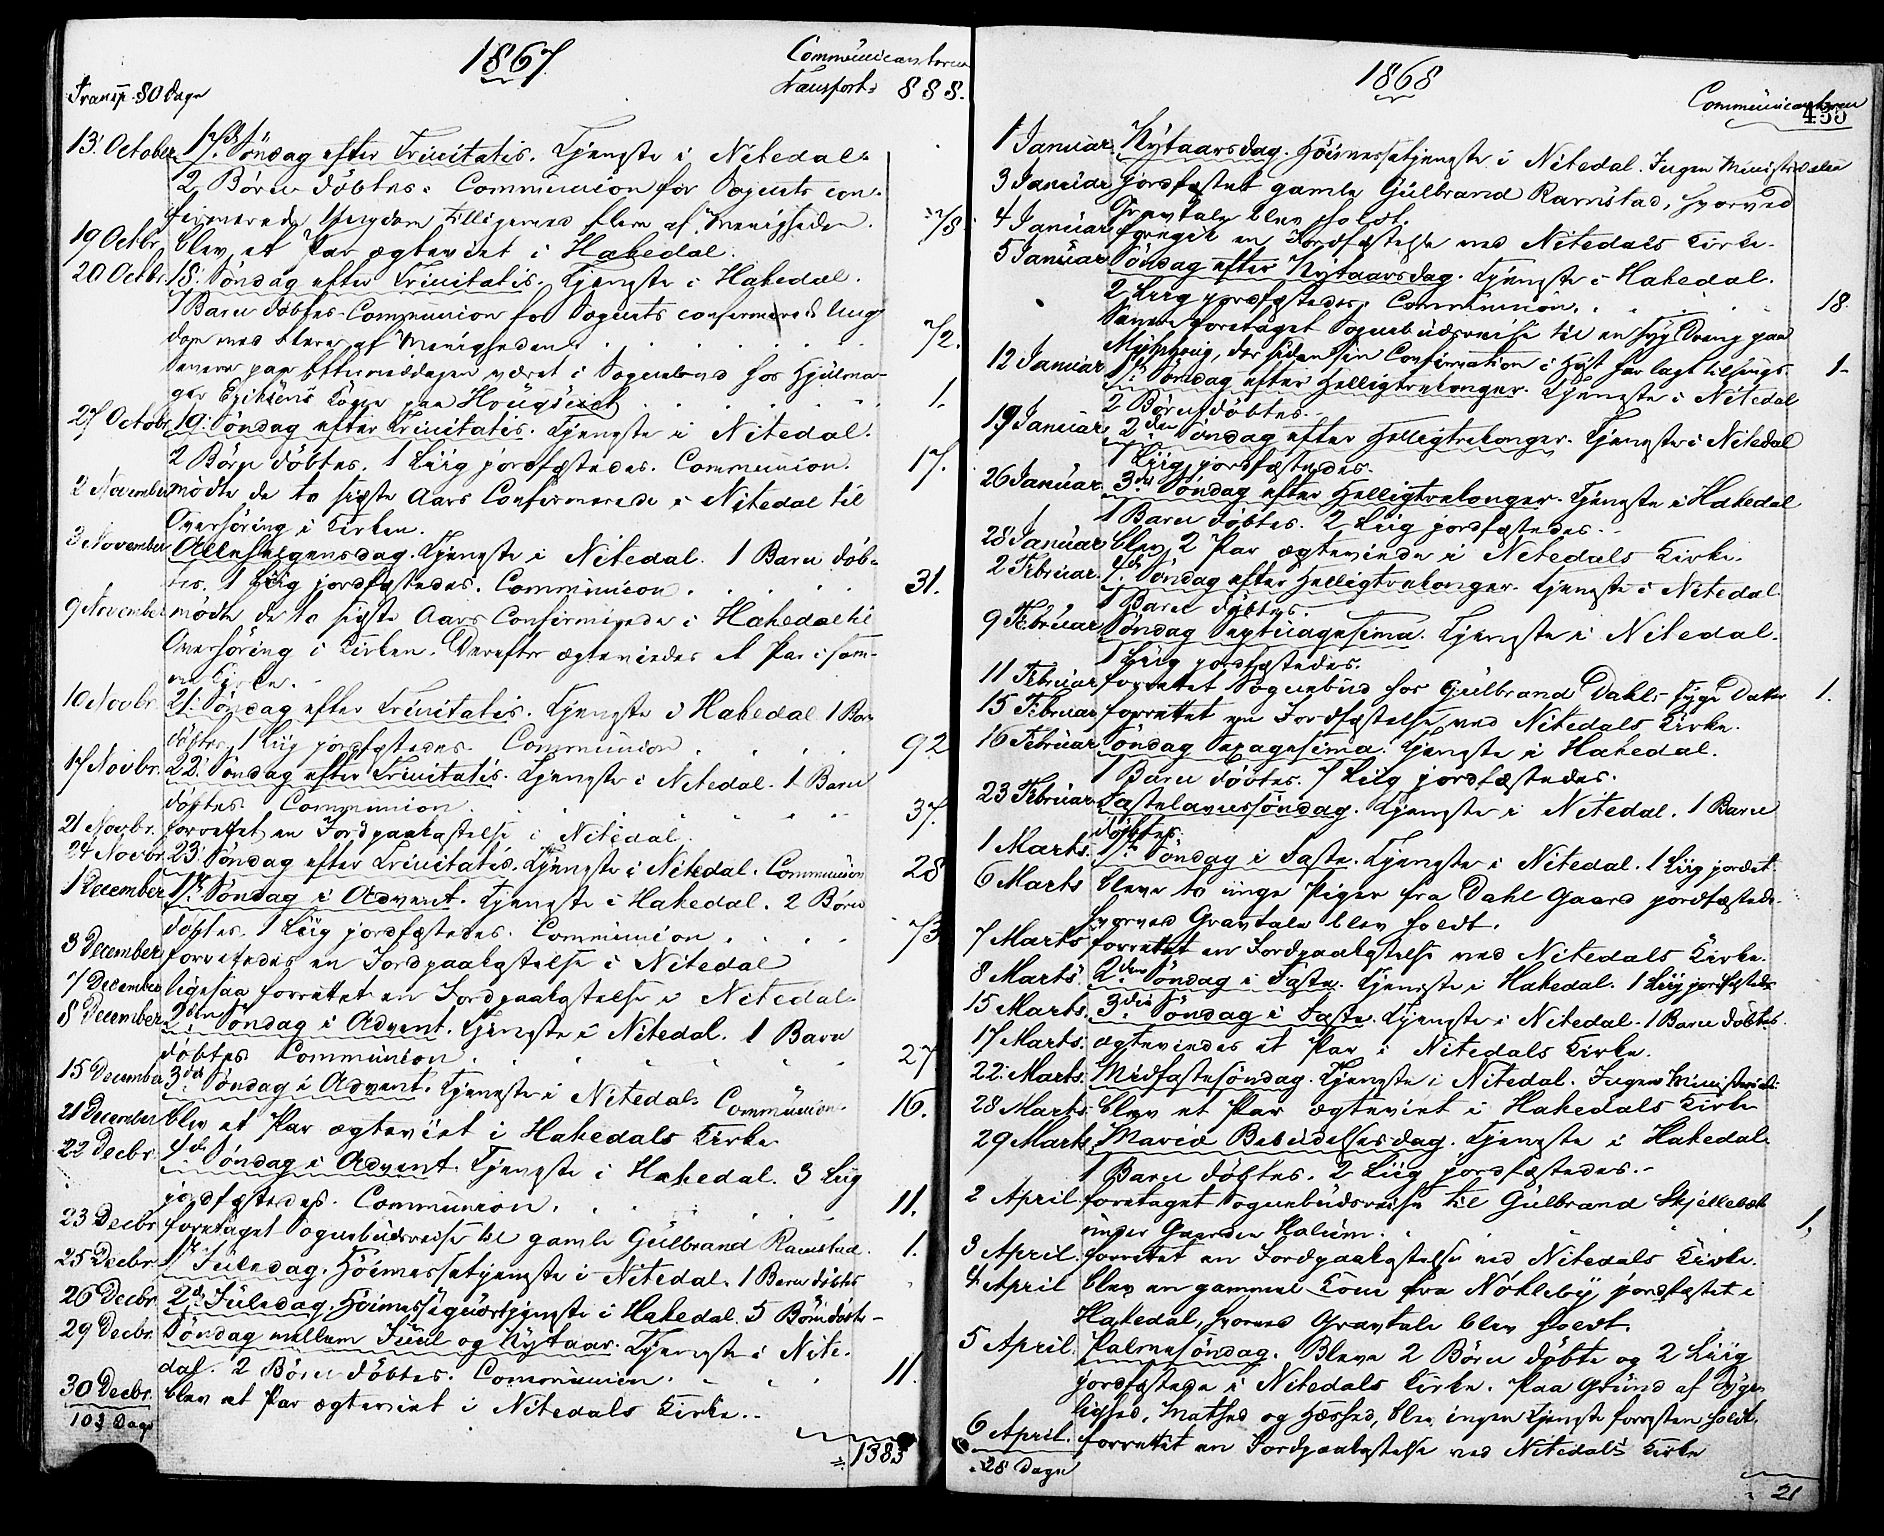 1867
Communicanterne
Transp. 80 Dage
Transport: 888.
13. October 17de Söndag efter Trinitatis. Tjeneste i Nitedal.
2 Börn döbtes. Communion for Sognets con-
firmerede Ungdom tilligemed flere af Menigheden. 78
19 Octbr. blev et Par ægteviet i Hakedal.
20 Octbr. 18. Söndag efter Trinitatis. Tjeneste i Hakedal.
1 Barn döbtes. Communion for Sognets confirmerede Ung-
dom med flere af Menigheden. 72.
Senere paa Eftermiddagen været i Sognebud hos Hjulma-
ger Eriksens Kone paa Hougsiset 1.
27 Octobr. 19. Söndag efter Trinitatis. Tjeneste i Nitedal.
2 Börn döbtes. 1 Liig jordfæstedes. Communion. 17.
2 November mödte de to sidste Aars Confirmerede i Nitedal til
Overhöring i Kirken.
3 November Allehelgensdag. Tjeneste i Nitedal. 1 Barn döb-
tes. 1 Liig jordfæstedes. Communion. 31.
9 November mödte de to sidste Aars Confirmerede i Hakedal til
Overhöring i Kirken. Derefter ægteviedes et Par i sam-
me Kirke.
10 Novbr. 21. Söndag efter Trinitatis. Tjeneste i Hakedal 1 Barn
döbtes. 1 Liig jordfæstedes. Communion 92
17 Novbr. 22. Söndag efter Trinitatis. Tjeneste i Nitedal. 1 Barn
döbtes. Communion. 37.
21 Novbr. forrettet en Jordpaakastelse i Nitedal.
24 Novbr. 23. Söndag efter Trinitatis. Tjeneste i Nitedal. Communion 28
1 December 1ste Söndag i Advent. Tjeneste i Hakedal. 2 Börn
döbtes. 1 Liig jordfæstedes. Communion. 73
3 December forrettedes en Jordpaakastelse i Nitedal
7 December ligesaa forrettet en Jordpaakastelse i Nitedal.
8 December 2den Söndag i Advent. Tjeneste i Nitedal. 1 Barn
döbtes Communion. 27
15 December 3die Söndag i Advent. Tjeneste i Nitedal. Communion. 16.
21 December blev et Par ægteviet i Hakedals Kirke
22 Decbr. 4de Söndag i Advent. Tjeneste i Hakedal. 3 Liig
jordfæstedes. Communion. 11.
23 Decbr. foretaget Sognebudsreise til gamle Gulbrand Ramstad. 1.
25 Decbr. 1ste Juledag. Höimessetjeneste i Nitedal. 1 Barn döbtes
26 Decbr. 2den Juledag. Höimessetjeneste i Hakedal. 5 Börn döbt-
29 Decbr. Söndag mellem Juul og Nytaar. Tjeneste i Nite-
dal. 2 Börn döbtes. Communion. 11.
30 Decbr. blev et Par ægteviet i Nitedals Kirke.
103 Dage
1383
1868
Communicanterne
455
1 Januar. Nytaarsdag. Höimessetjeneste i Nitedal. Ingen Ministerialier
3 Januar jordfæstet gamle Gulbrand Ramstad, hvorved
Gravtale blev holdt.
4 Januar foregik en Jordfæstelse ved Nitedals Kirke.
5 Januar Söndag efter Nytaarsdag. Tjeneste i Hakedal.
2 Liig jordfæstedes. Communion. 18.
Senere foretaget Sognebudsreise til en syg Dreng paa
der siden sin Confirmation i Höst har lagt tilsengs 1-
12 Januar 1ste Söndag efter Helligtrekonger. Tjeneste i Nitedal
2 Börn döbtes.
19 Januar 2den Söndag efter Helligtrekonger. Tjeneste i Nitedal
1 Liig jordfæstedes.
26 Januar. 3die Söndag efter Helligtrekonger. Tjeneste i Hakedal
1 Barn döbtes. 2 Liig jordfæstedes.
28 Januar blev 2 Par ægteviede i Nitedals Kirke.
2 Februar. 4de Söndag efter Helligtrekonger. Tjeneste i Nitedal.
1 Barn döbtes.
9 Februar Söndag Septuagesima. Tjeneste i Nitedal.
1 Liig jordfæstedes.
11 Februar forrettet Sognebud hos Gulbrand Dahls syge Datter 1.
15 Februar forrettet en Jordfæstelse ved Nitedals Kirke.
16 Februar Söndag Sexagesima. Tjeneste i Hakedal.
1 Barn döbtes. 7 Liig jordfæstedes.
23 Februar Fastelavnssöndag. Tjeneste i Nitedal. 1 Barn
döbtes.
1 Marts. 1ste Söndag i Faste. Tjeneste i Nitedal. 1 Liig jordet
6 Marts bleve to unge Piger fra Dahl Gaard jordfæstede.
hvorved Gravtale blev holdt.
7 Marts forrettet en Jordpaakastelse ved Nitedals Kirke.
8 Marts. 2den Söndag i Faste. Tjeneste i Hakedal. 1 Liig jordfæstedes
15 Marts. 3die Söndag i Faste. Tjeneste i Nitedal. 1 Barn döbtes.
17 Marts. ægteviedes et Par i Nitedals Kirke.
22. Marts. Midfastesöndag. Tjeneste i Nitedal. Ingen Ministerial.
28 Marts. blev et Par ægteviet i Hakedals Kirke
29 Marts. Mariæ Bebudelsesdag. Tjeneste i Hakedal.
1 Barn döbtes. 2 Liig jordfæstedes.-
2 April. foretaget Sognebudsreise til Gulbrand Skjellebæk
under Gaarden Holum. 1.
3 April. forrettet en Jordpaakastelse ved Nitedals Kirke.
4 April blev en gammel Kone fra Nökleby jordfæstet i
Hakedal, hvorved Gravtale blev holdt.
5 April. Palmesöndag. Bleve 2 Börn döbte og 2 Liig
jordfæstede i Nitedals Kirke. Paa Grund af Syge-
lighed, Mathed og Hæshed, blev ingen Tjeneste forresten holdt.
6 April. forrettet en Jordpaakastelse ved Nitedals Kirke
28 Dage
21